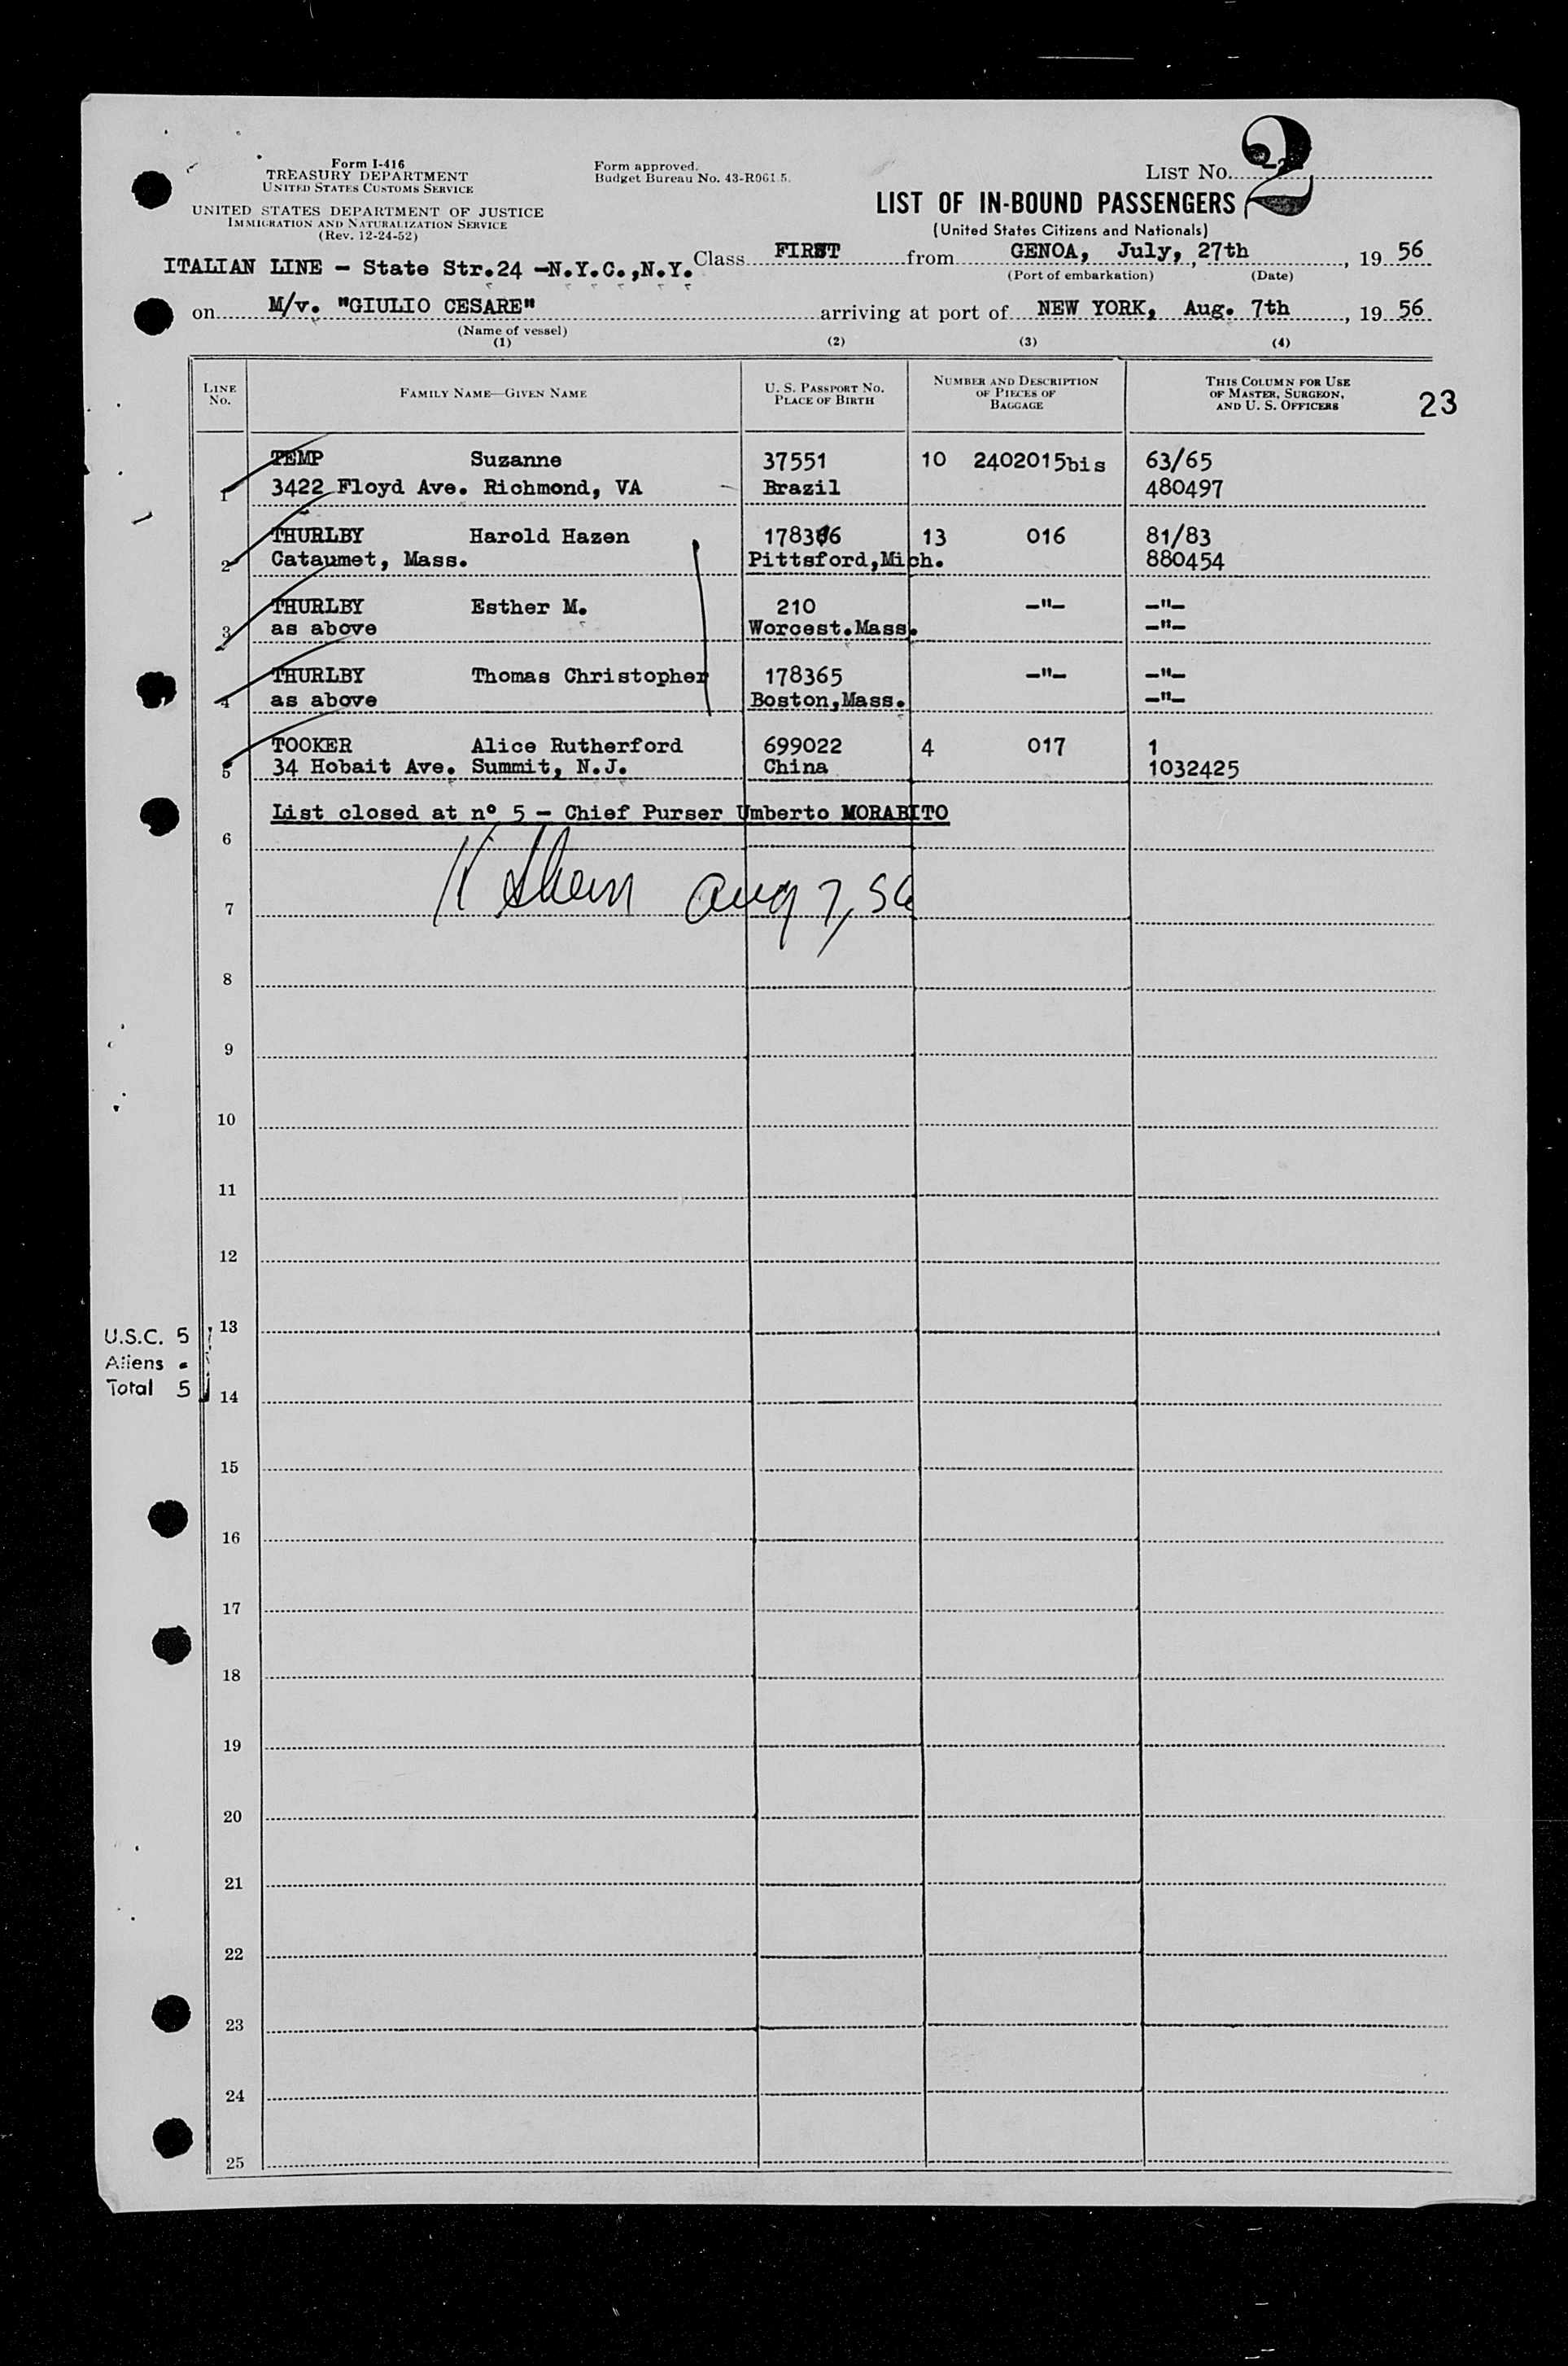 Form I-416
TREASURY DEPARTMENT
UNITED STATES CUSTOMS SERVICE
UNITED STATES DEPARTMENT OF JUSTICE
IMMIGRATION AND NATURALIZATION SERVICE
(Rev. 12-24-52)
Form approved.
Budget Bureau No. 43-R061.5.
LIST NO. 2
LIST OF IN-BOUND PASSENGERS
(United States Citizens and Nationals)
ITALIAN LINE - State Str.24 -N.Y.C.,N.Y. Class FIRST from GENOA, July, 27th, 19 56
(Port of embarkation) (Date)
on M/v. "GIULIO CESARE" arriving at port of NEW YORK, Aug. 7th, 19 56
(Name of vessel)
(1) (2) (3) (4)
LINE NO. FAMILY NAME—GIVEN NAME U. S. PASSPORT NO. PLACE OF BIRTH NUMBER AND DESCRIPTION OF PIECES OF BAGGAGE THIS COLUMN FOR USE OF MASTER, SURGEON, AND U. S. OFFICERS
23
TEMP Suzanne 37551 10 2402015bis 63/65
1 3422 Floyd Ave. Richmond, VA - Brazil 480497
THURLBY Harold Hazen 178366 13 016 81/83
2 Cataumet, Mass. Pittsford,Mich. 880454
THURLBY Esther M. 210 -"- -"-
3 as above Worcest.Mass. -"-
THURLBY Thomas Christopher 178365 -"- -"-
4 as above Boston,Mass. -"-
TOOKER Alice Rutherford 699022 4 017 1
5 34 Hobait Ave. Summit, N.J. China 1032425
List closed at n° 5 - Chief Purser Umberto MORABITO
6
Aug 7, 56
7
8
9
10
11
12
U.S.C. 5 13
Aliens -
Total 5 14
15
16
17
18
19
20
21
22
23
24
25